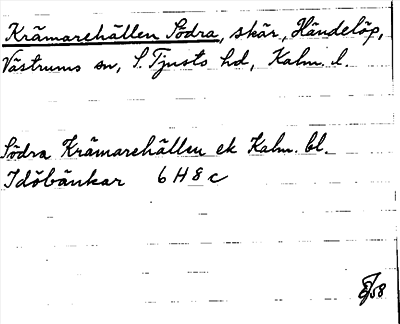 Krämarehällen Södra, skär, Händelöp,
Västrums sn, S. Tjusts hd, Kalm. l.
Södra Krämarehällen ek Kalm. bl.
Idöbänkar 6 H 8 c
/58